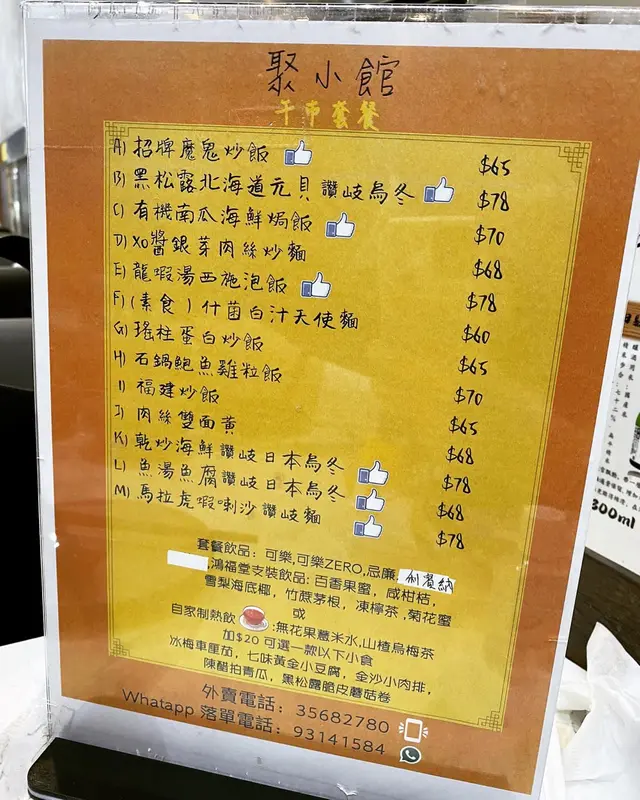 聚小館
午市套餐
A) 招牌魔鬼炒飯 $65
B) 黑松露北海道元貝讚岐烏冬 $78
C) 有機南瓜海鮮焗飯 $70
D) XO醬銀芽肉絲炒麵 $68
E) 龍蝦湯西施泡飯 $78
F) (素食)什菌白汁天使麵 $60
G) 瑤柱蛋白炒飯 $65
H) 石鍋鮑魚雞粒飯 $70
I) 福建炒飯 $65
J) 肉絲雙面黃 $68
K) 乾炒海鮮讚岐日本烏冬 $78
L) 魚湯魚腐讚岐日本烏冬 $68
M) 馬拉虎蝦喇沙讚岐麵 $78
套餐飲品: 可樂,可樂ZERO,忌廉,利賓納
鴻福堂支裝飲品: 百香果蜜, 咸柑桔,
雪梨海底椰, 竹蔗茅根, 凍檸茶,菊花蜜
或
自家制熱飲 :無花果薏米水,山楂烏梅茶
加$20 可選一款以下小食
冰梅車厘茄, 七味黃金小豆腐, 金沙小肉排,
陳醋拍青瓜, 黑松露脆皮蘑菇卷
外賣電話: 35682780
Whatapp 落單電話: 93141584
300ml